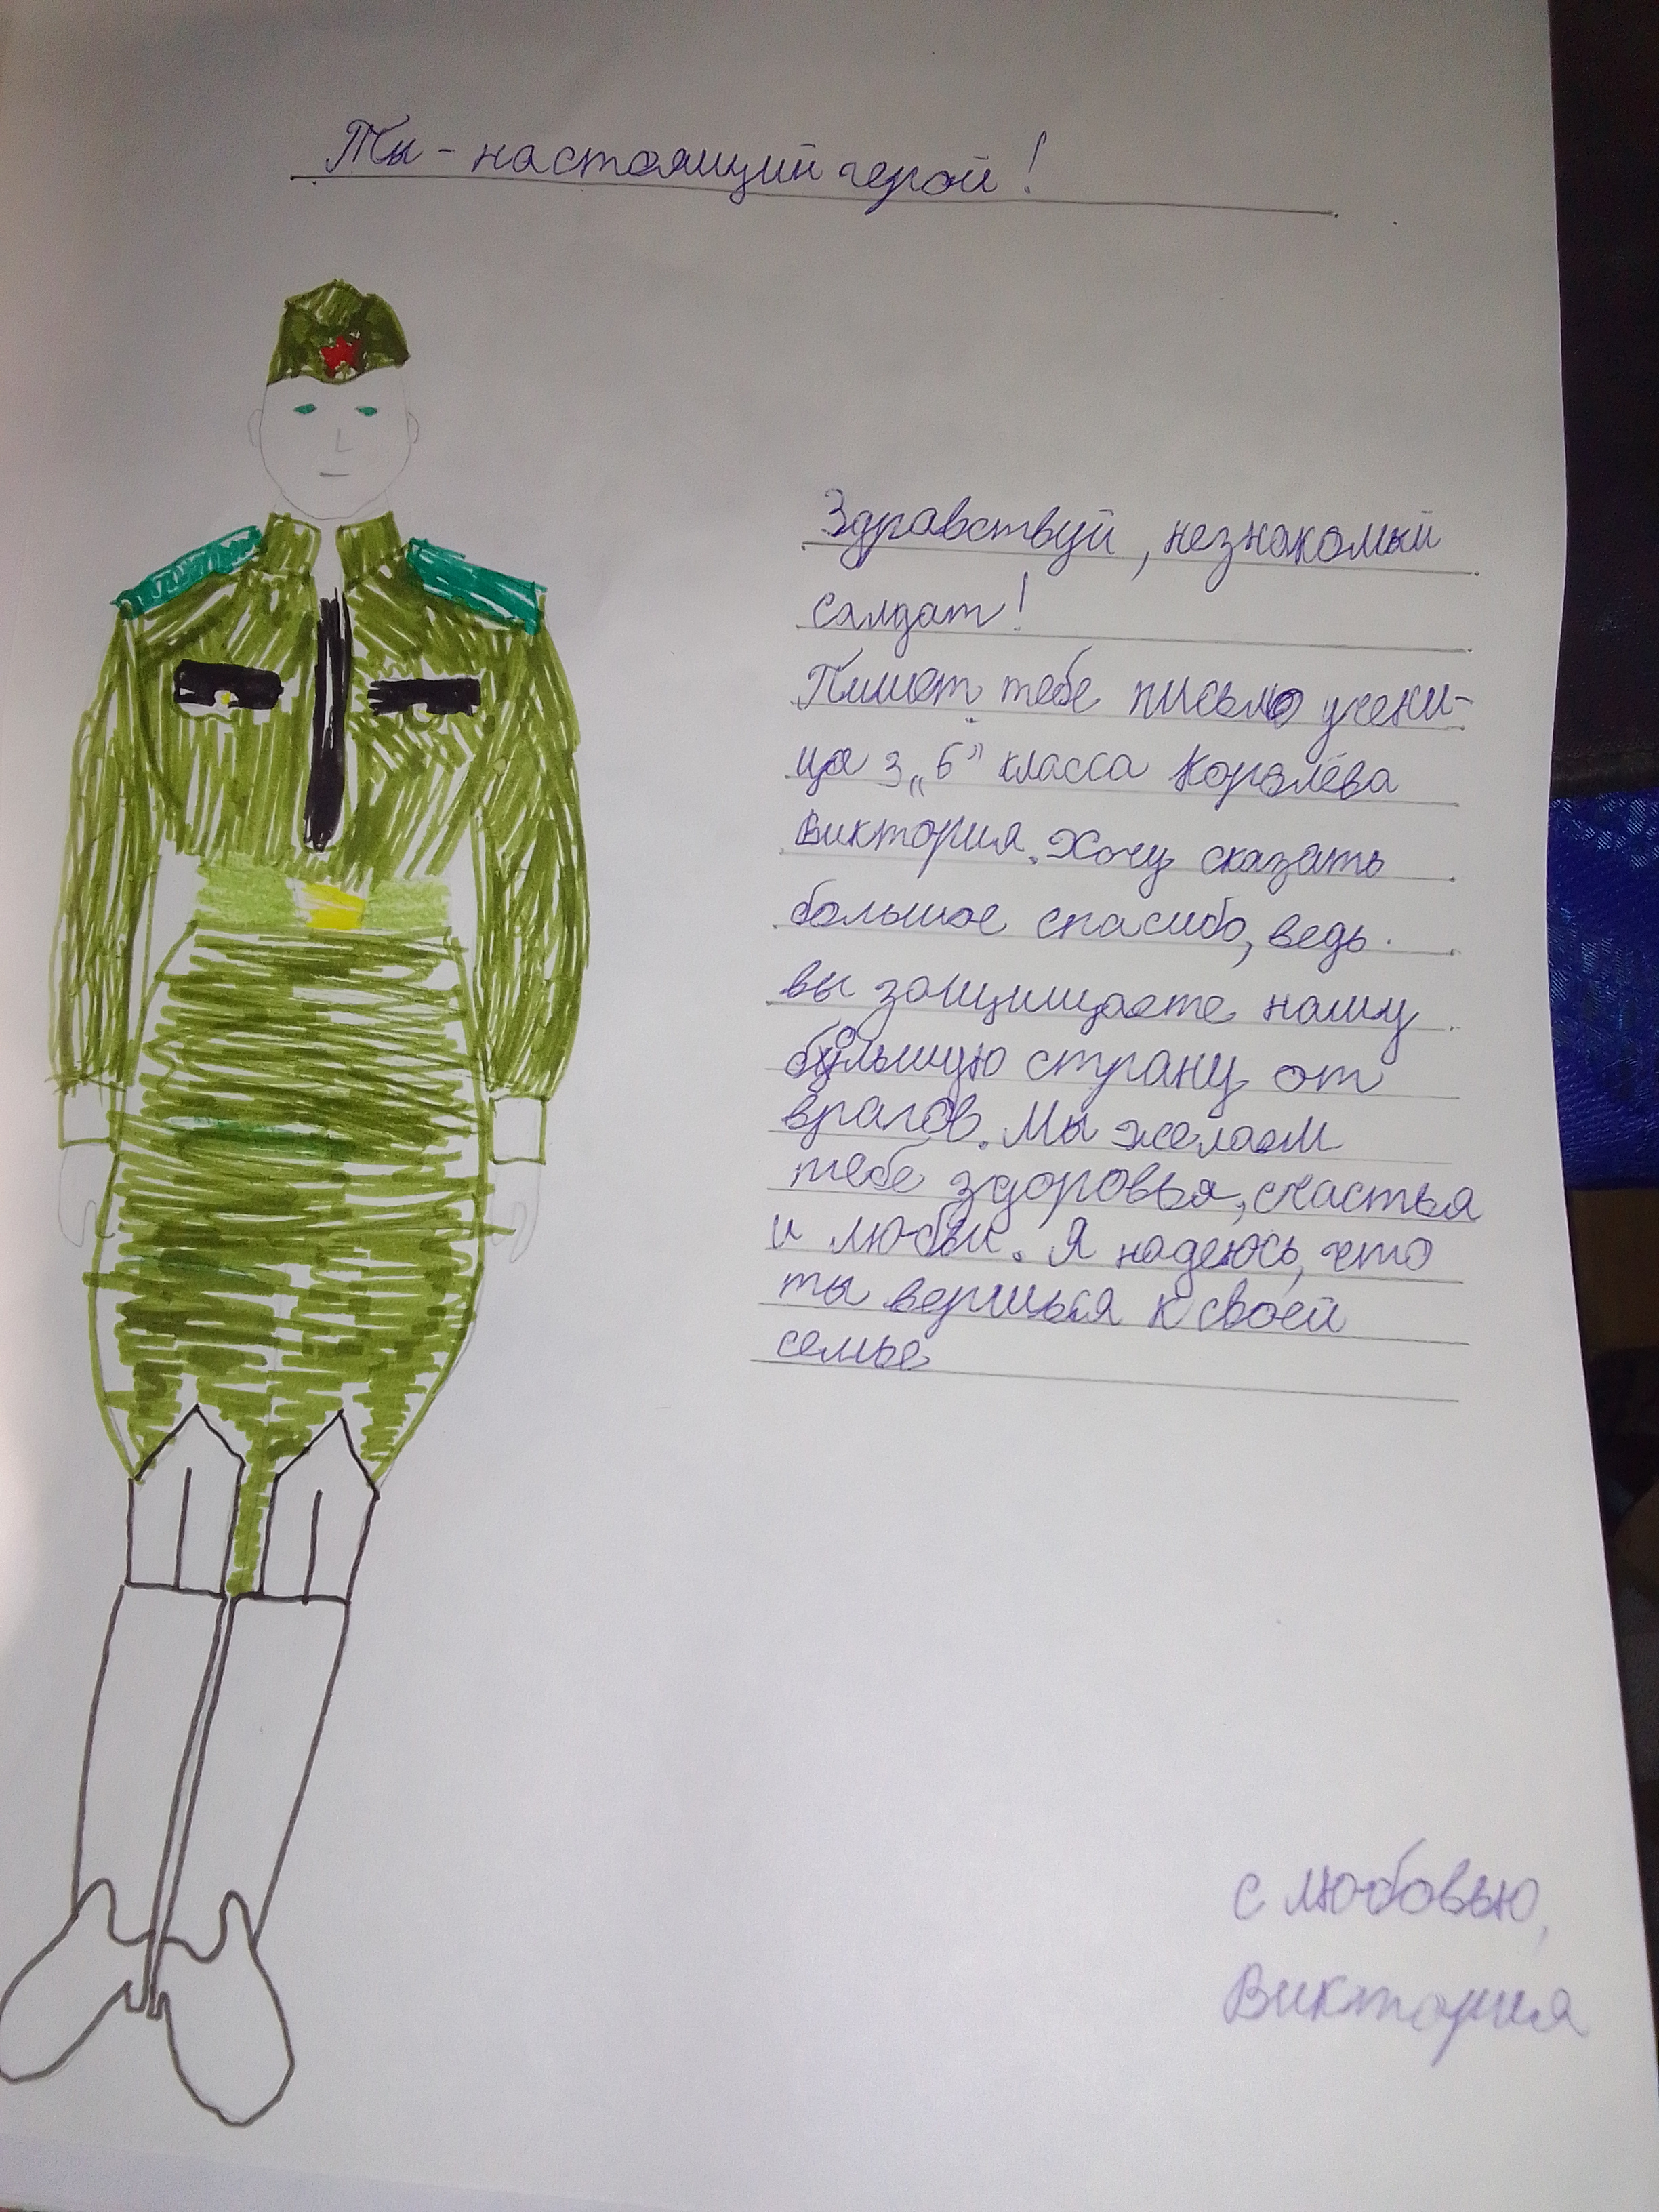 Ты - настоящий герой!
Здравствуй, незнакомый
салдат!
Пишет тебе письмо учени-
ца 3 „б” класса Королёва
Виктория. Хочу сказать
большое спасибо, ведь
вы защищаете нашу
большую страну от
врагов. Мы желаем
тебе здоровья, счастья
и любви. Я надеюсь, что
ты верншься к своей
семье
с любовью,
Виктория